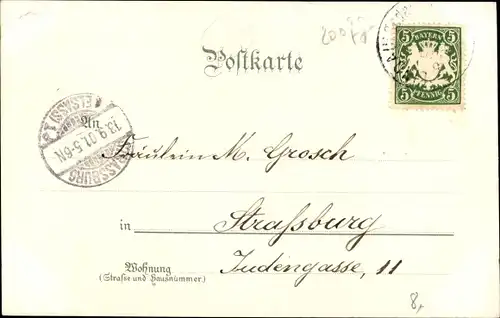 Postkarte
5 BAYERN 5
5 PFENNIG 5
An
STRASSBURG
(ELSASS) 1
13.9.01.5-6N.
Fräulein M. Grosch
in Straßburg
Wohnung Judengasse, 11
(Straße und Hausnummer.)
8,